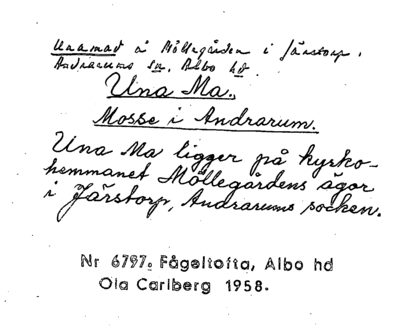 Unamad å Möllegården i Järstorp,
Andrarums sn, Albo hd.
Una Ma.
Mosse i Andrarum.
Una Ma ligger på kyrko-
hemmanet Möllegårdens ägor
i Järstorp, Andrarums socken.
Nr 6797. Fågeltofta, Albo hd
Ola Carlberg 1958.